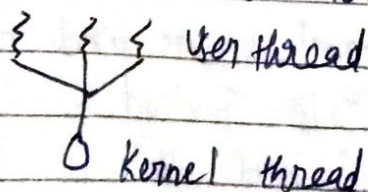 User thread
Kernel thread